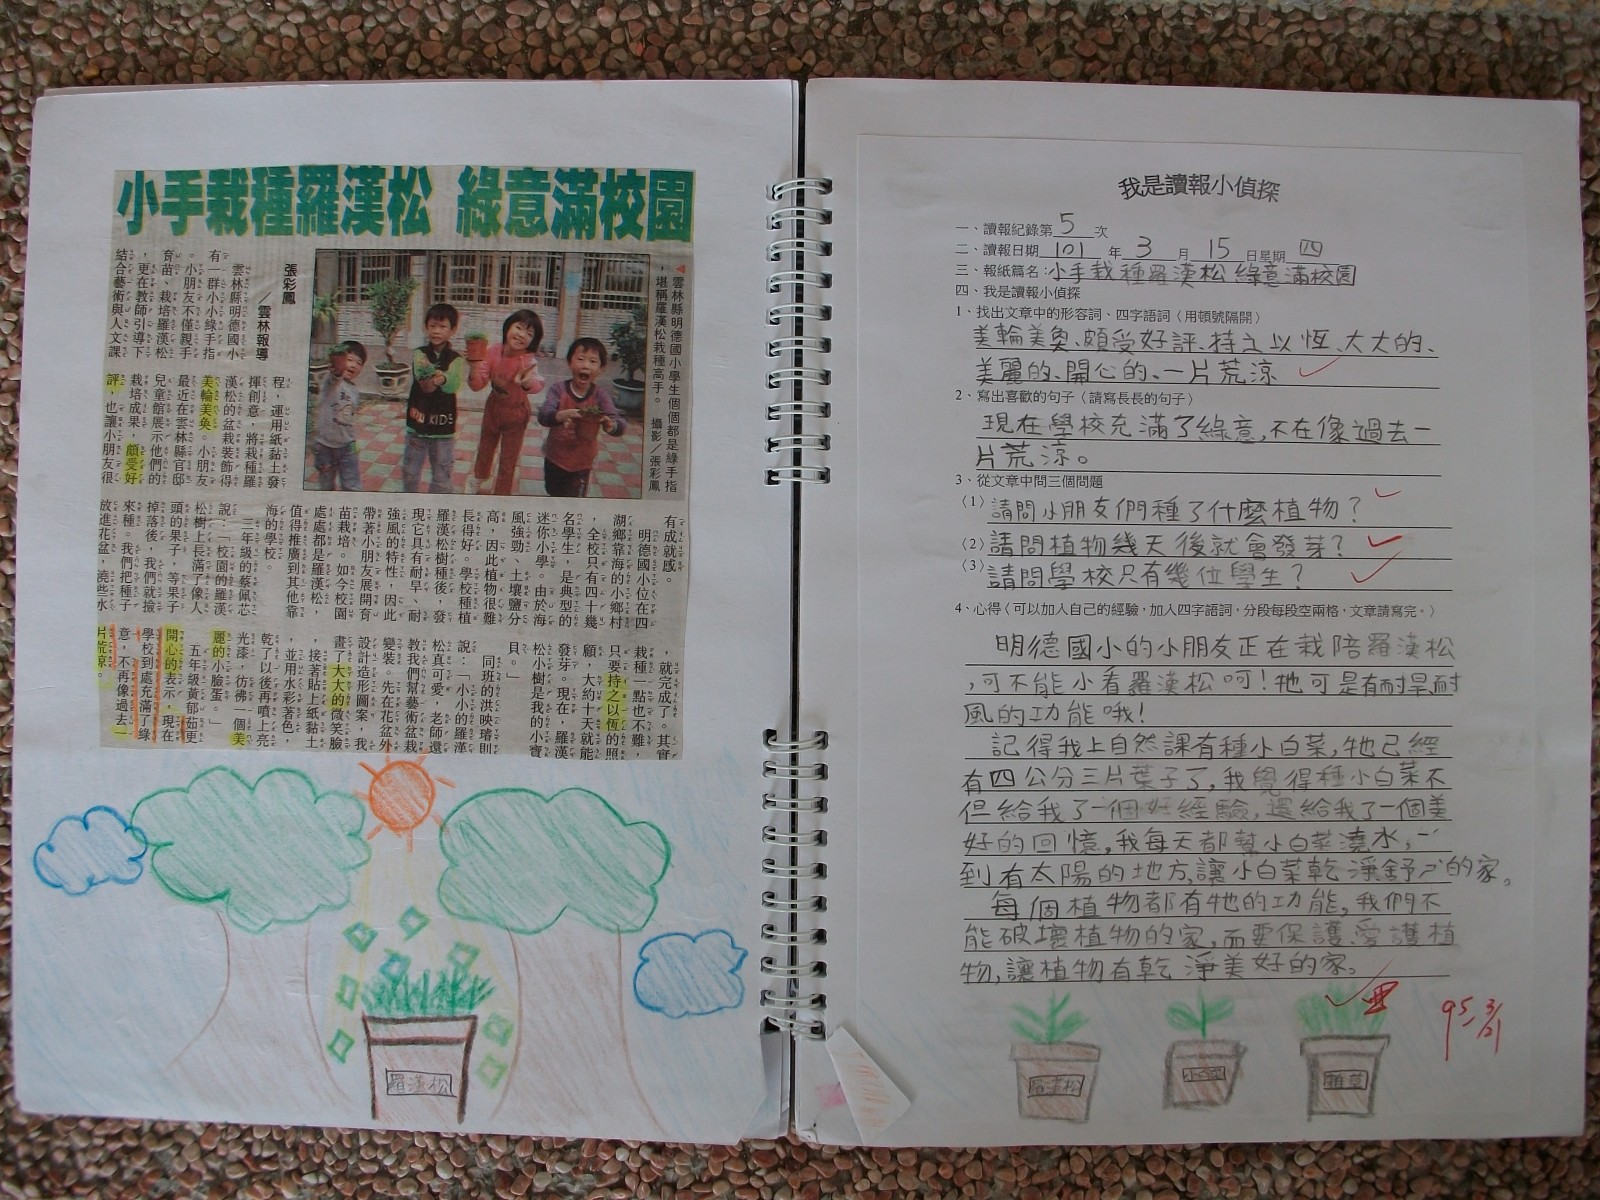 小手栽種羅漢松 綠意滿校園
◀雲林縣明德國小學生個個都是綠手指
，堪稱羅漢松栽種高手。 攝影／張彩鳳
張彩鳳／雲林報導
雲林縣明德國小
有一群小小綠手指
。小朋友不僅親手
育苗、栽培羅漢松
，更在教師引導下
結合藝術與人文課
程，運用紙黏土發
揮創意，將栽種羅
漢松的盆栽裝飾得
美輪美奐。小朋友
最近在雲林縣官邸
兒童館展示他們的
栽培成果，頗受好
評，也讓小朋友很
有成就感。
明德國小位在四
湖鄉靠海的小鄉村
，全校只有四十幾
名學生，是典型的
迷你小學。由於海
風強勁、土壤鹽分
高，因此植物很難
長得好。學校種植
羅漢松樹種後，發
現它具有耐旱、耐
強風的特性，因此
帶著小朋友展開育
苗栽培。如今校園
處處都是羅漢松，
值得推廣到其他靠
海的學校。
三年級的蔡佩芯
說：「校園的羅漢
松樹上長滿了像人
頭的果子，等果子
掉落後，我們就撿
來種。我們把種子
放進花盆，澆些水
，就完成了。其實
栽種一點也不難，
只要持之以恆的照
顧，大約十天就能
發芽。現在，羅漢
松小樹是我的小寶
貝。」
同班的洪映瑃則
說：「小小的羅漢
松真可愛，老師還
教我們幫藝術盆栽
變裝。先在花盆外
設計造形圖案，我
畫了大大的微笑臉
，接著貼上紙黏土
，並用水彩著色，
乾了以後再噴上亮
光漆，彷彿一個美
麗的小臉蛋。」
五年級黃郁茹更
開心的表示，現在
學校到處充滿了綠
意，不再像過去一
片荒涼。
羅漢松
我是讀報小偵探
一、讀報紀錄第 5 次
二、讀報日期 101 年 3 月 15 日星期 四
三、報紙篇名：小手栽種羅漢松 綠意滿校園
四、我是讀報小偵探
1、找出文章中的形容詞、四字語詞（用頓號隔開）
美輪美奐、頗受好評、持之以恆、大大的、
美麗的、開心的、一片荒涼
2、寫出喜歡的句子（請寫長長的句子）
現在學校充滿了綠意，不在像過去一
片荒涼。
3、從文章中問三個問題
（1）請問小朋友們種了什麼植物？
（2）請問植物幾天後就會發芽？
（3）請問學校只有幾位學生？
4、心得（可以加入自己的經驗，加入四字語詞，分段每段空兩格，文章請寫完。）
明德國小的小朋友正在栽陪羅漢松
，可不能小看羅漢松呵！牠可是有耐旱耐
風的功能哦！
記得我上自然課有種小白菜，牠已經
有四公分三片葉子了，我覺得種小白菜不
但給我了一個好經驗，還給我了一個美
好的回憶，我每天都幫小白菜澆水，
到有太陽的地方，讓小白菜乾淨舒的家。
每個植物都有牠的功能，我們不
能破壞植物的家，而要保護、愛護植
物，讓植物有乾淨美好的家。
95 3/21
羅漢松
小白菜